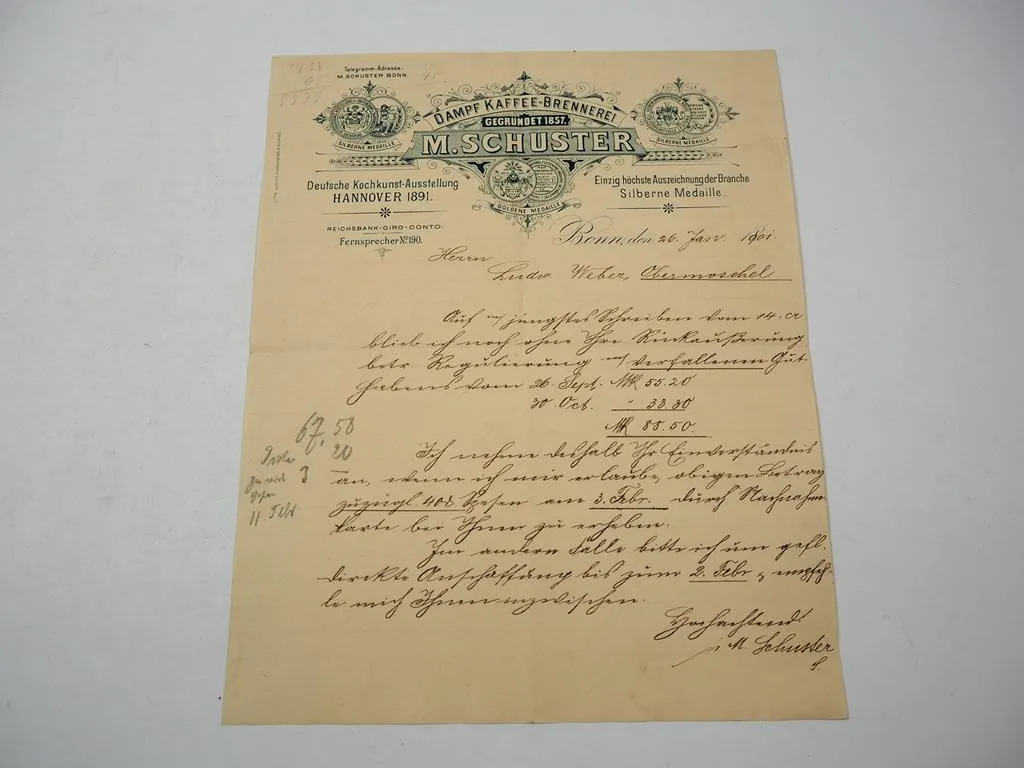 Telegramm-Adresse:
M. SCHUSTER BONN.
45.
DAMPF KAFFEE-BRENNEREI
GEGRÜNDET 1857.
M. SCHUSTER
SILBERNE MEDAILLE
SILBERNE MEDAILLE
GOLDENE MEDAILLE
Deutsche Kochkunst-Ausstellung
HANNOVER 1891.
Einzig höchste Auszeichnung der Branche
Silberne Medaille.
REICHSBANK-GIRO-CONTO.
Fernsprecher No 190.
Bonn, den 26 Jan. 1901
Herrn
Ludw. Weber, Obermoschel
Auf jüngstes Schreiben vom 14. cr
blieb ich noch ohne Ihre Rückäußerung
betr. Regulierung verfallenen Gut-
habens vom 26. Sept. Mk 55.20
30 Oct. " 33 30
Mk 88.50.
Ich nehme deshalb Ihr Einverständnis
an, wenn ich mir erlaube, obigen Betrag
zuzügl. 40 Spesen am 3. Febr. durch Nachnahm
karte bei Ihnen zu erheben.
Im andern Falle bitte ich um gefl.
direkte Anschaffung bis zum 2. Febr & empfeh-
le mich Ihnen inzwischen.
Hochachtend
M. Schuster
67,58
20
3
11 Febr